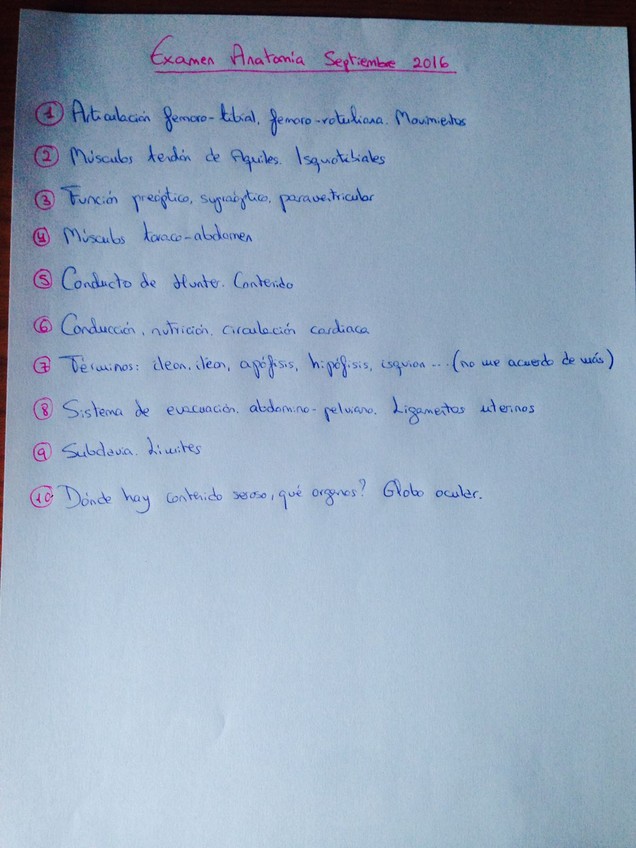 Examen Anatomía Septiembre 2016
1 Articulación femoro-tibial, femoro-rotuliana. Movimientos
2 Músculos tendón de Aquiles. Isquiotibiales
3 Función preóptico, supraóptico, paraventricular
4 Músculos toraco-abdomen
5 Conducto de Hunter. Contenido
6 Conducción, nutrición, circulación cardiaca
7 Términos: íleon, ilion, apófisis, hipófisis, isquion... (no me acuerdo de más)
8 Sistema de evacuación, abdomino-pelviano. Ligamentos uterinos
9 Subclavia. Límites
10 Dónde hay contenido seroso, qué organos? Globo ocular.